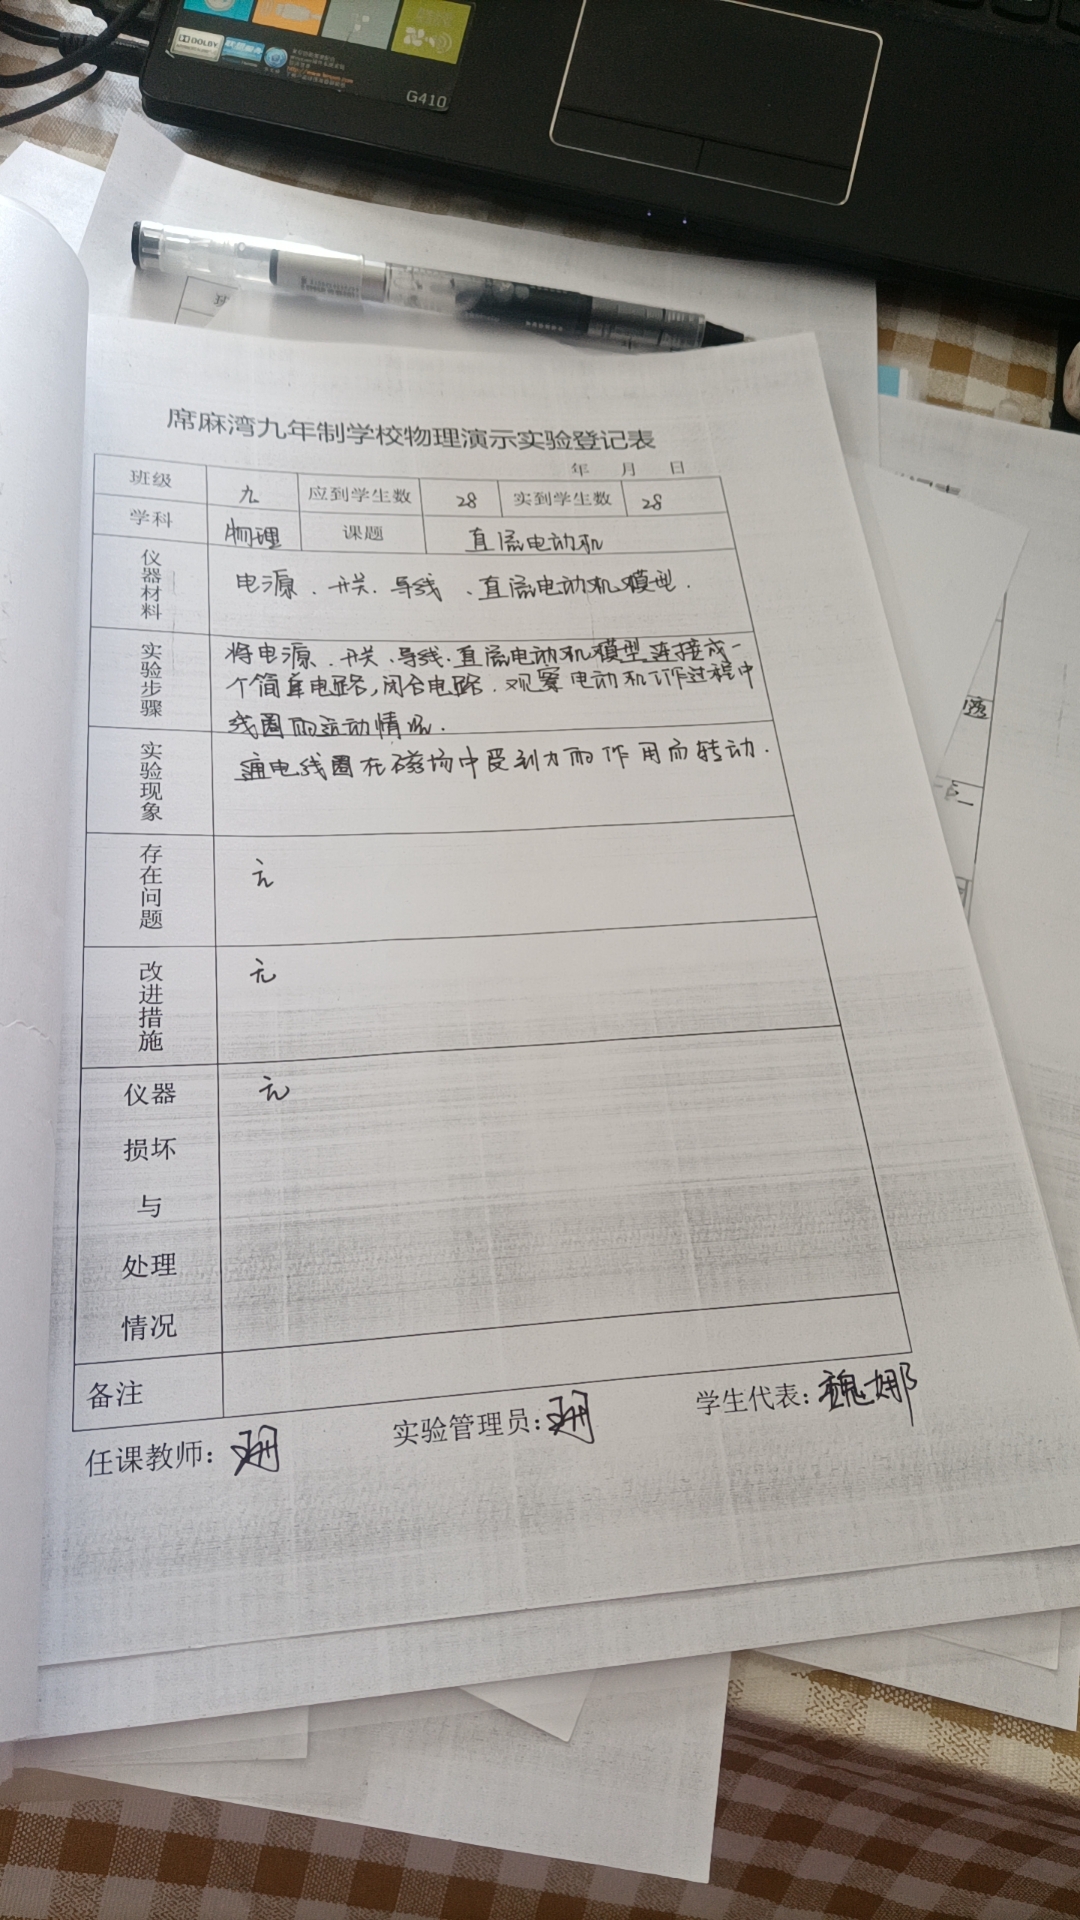 DOLBY
G410
席麻湾九年制学校物理演示实验登记表
年 月 日
班级 九 应到学生数 28 实到学生数 28
学科 物理 课题 直流电动机
仪器材料 电源、开关、导线、直流电动机模型.
实验步骤 将电源、开关、导线、直流电动机模型连接成一
个简单电路,闭合电路.观察电动机工作过程中
线圈的运动情况.
实验现象 通电线圈在磁场中受到力的作用而转动.
存在问题 无
改进措施 无
仪器 无
损坏
与
处理
情况
备注
任课教师: 实验管理员: 学生代表:魏娜